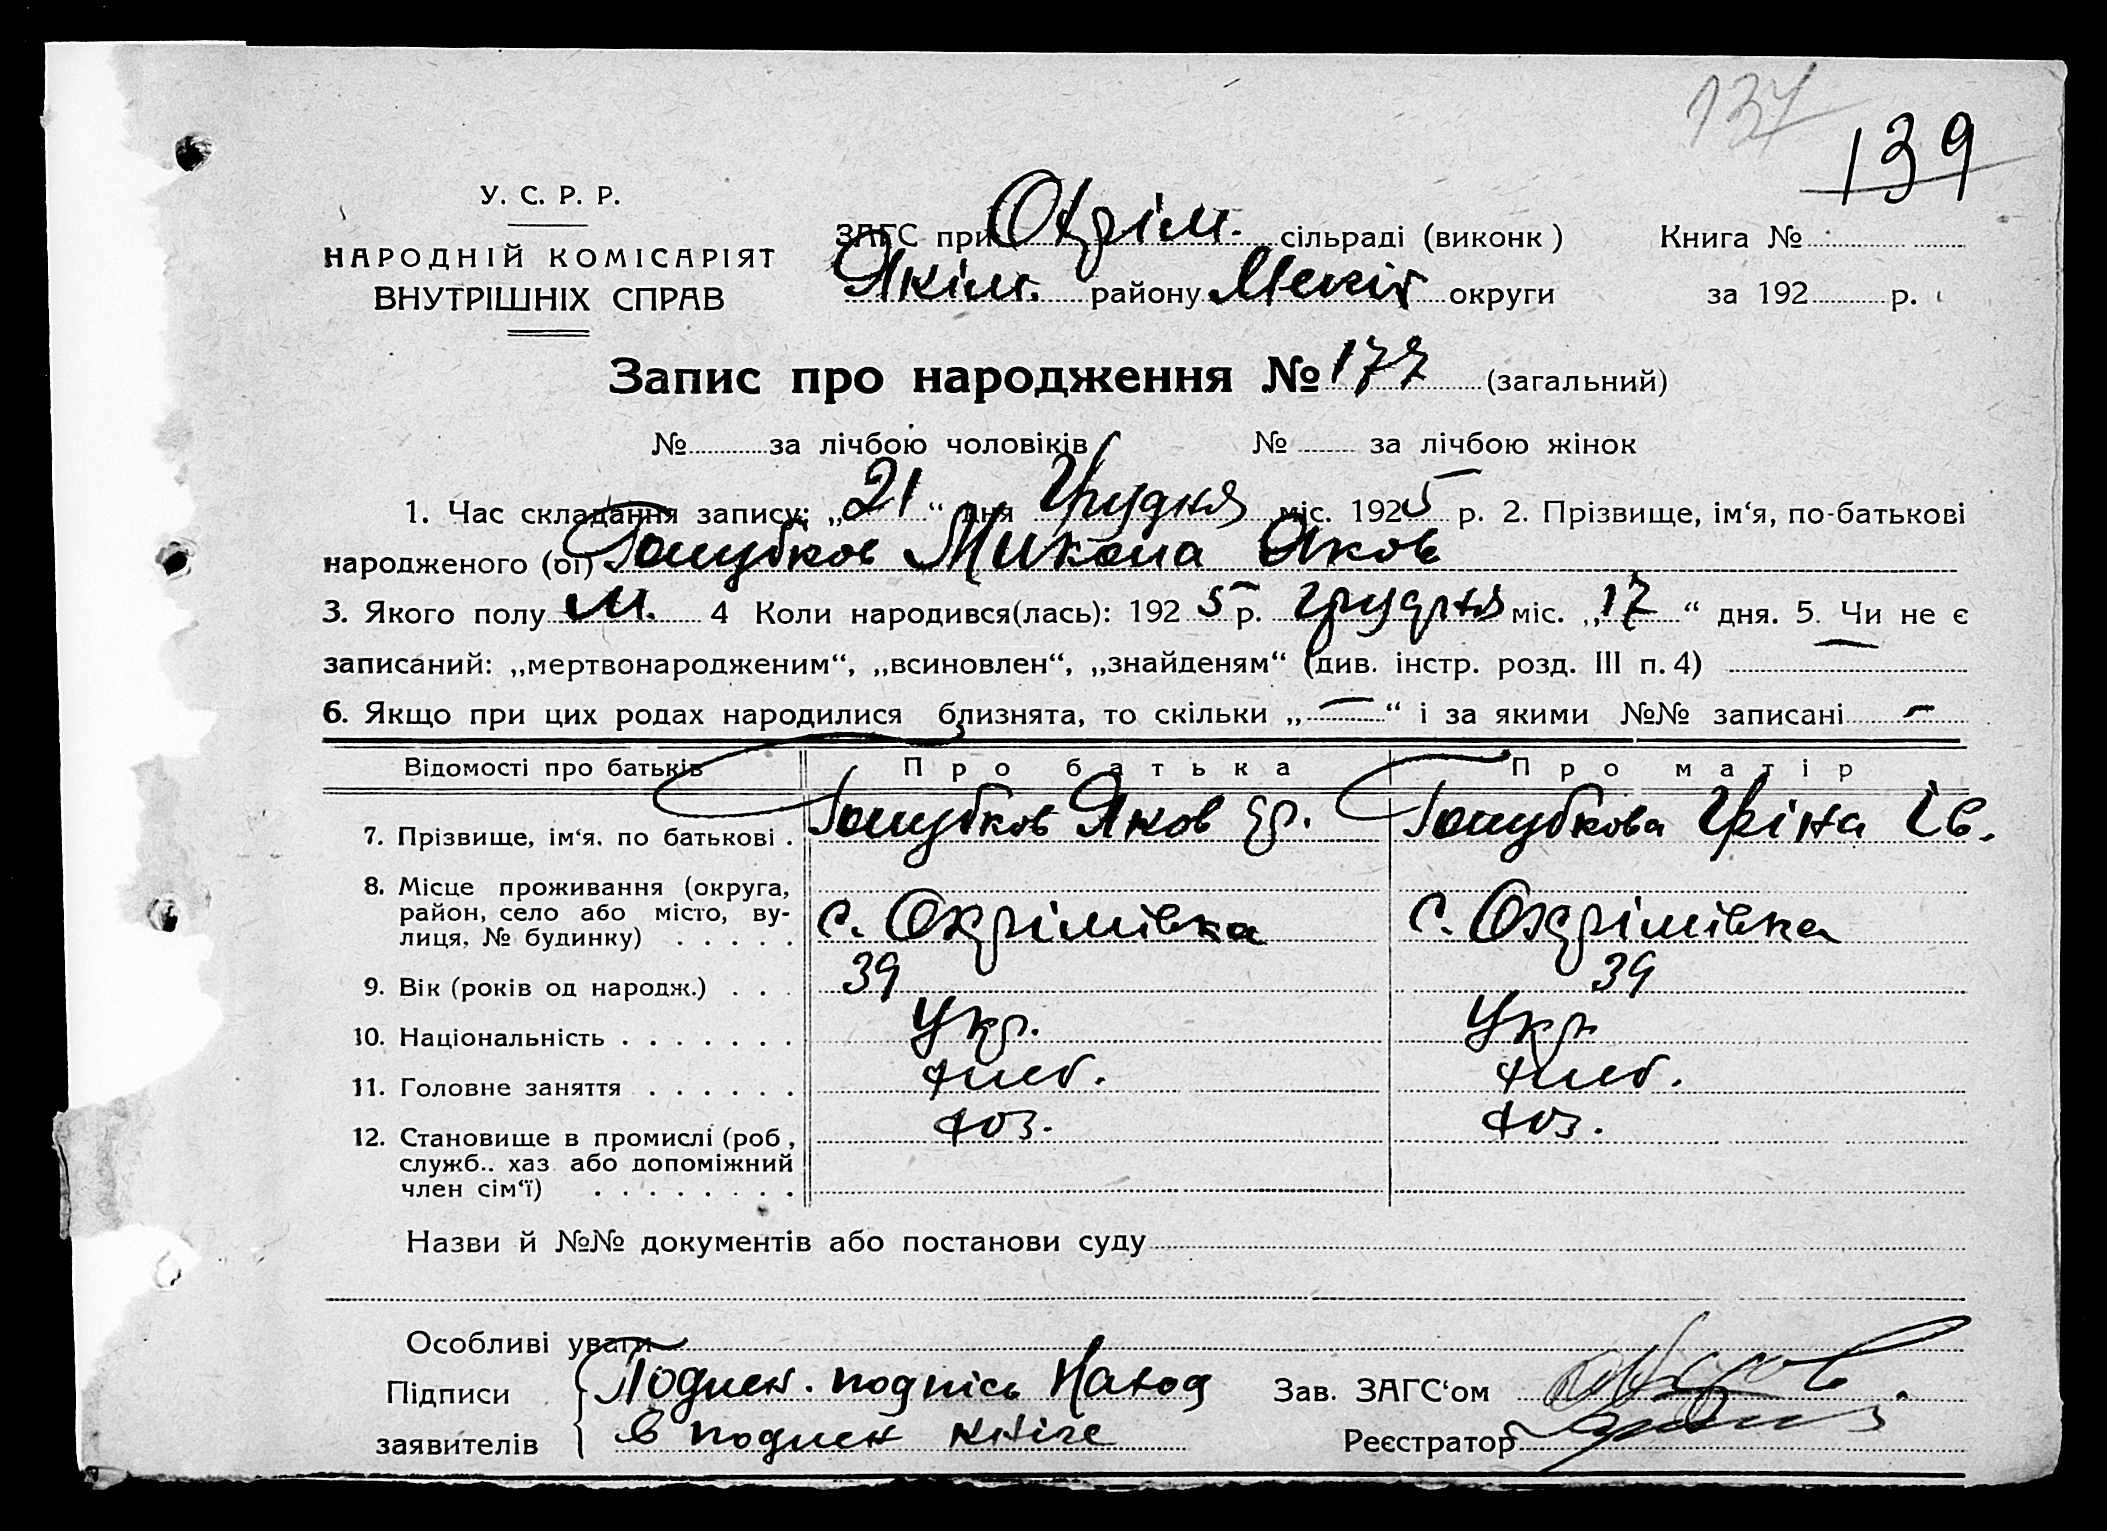 137
139
У. С. Р. Р.
НАРОДНІЙ КОМІСАРІЯТ
ВНУТРІШНІХ СПРАВ
ЗАГС при Охрім. сільраді (виконк ) Книга №
Якім. району Меліт округи за 192 р.
Запис про народження № 177 (загальний)
№ за лічбою чоловіків № за лічбою жінок
1. Час складання запису: „21“ дня Грудня міс. 1925 р. 2. Прізвище, ім‘я, по-батькові
народженого (ої) Голубков Микола Яков
3. Якого полу м. 4 Коли народився(лась): 1925 р. грудня міс. „17“ дня. 5. Чи не є
записаний: „мертвонародженим“, „всиновлен“, „знайденям“ (див. інстр. розд. III п. 4) —
6. Якщо при цих родах народилися близнята, то скільки „—“ і за якими №№ записані —
Відомості про батьків Про батька Про матір
7. Прізвище, ім‘я. по батькові . Голубков Яков гр. Голубкова Гріна Ів.
8. Місце проживання (округа,
район, село або місто, ву-
лиця, № будинку) . . . . . с. Охрімівка с. Охрімівка
9. Вік (років од народж.) . . . 39 39
10. Національність . . . . . . . Укр. Укр
11. Головне заняття . . . . . . хліб. хліб.
12. Становище в промислі (роб , хоз. хоз.
служб.. хаз або допоміжний
член сім‘ї) . . . . . . . .
Назви й №№ документів або постанови суду
Особливі уваги
Підписи Подлен. подпісь Наход Зав. ЗАГС‘ом
заявителів в подлен кніге Реєстратор